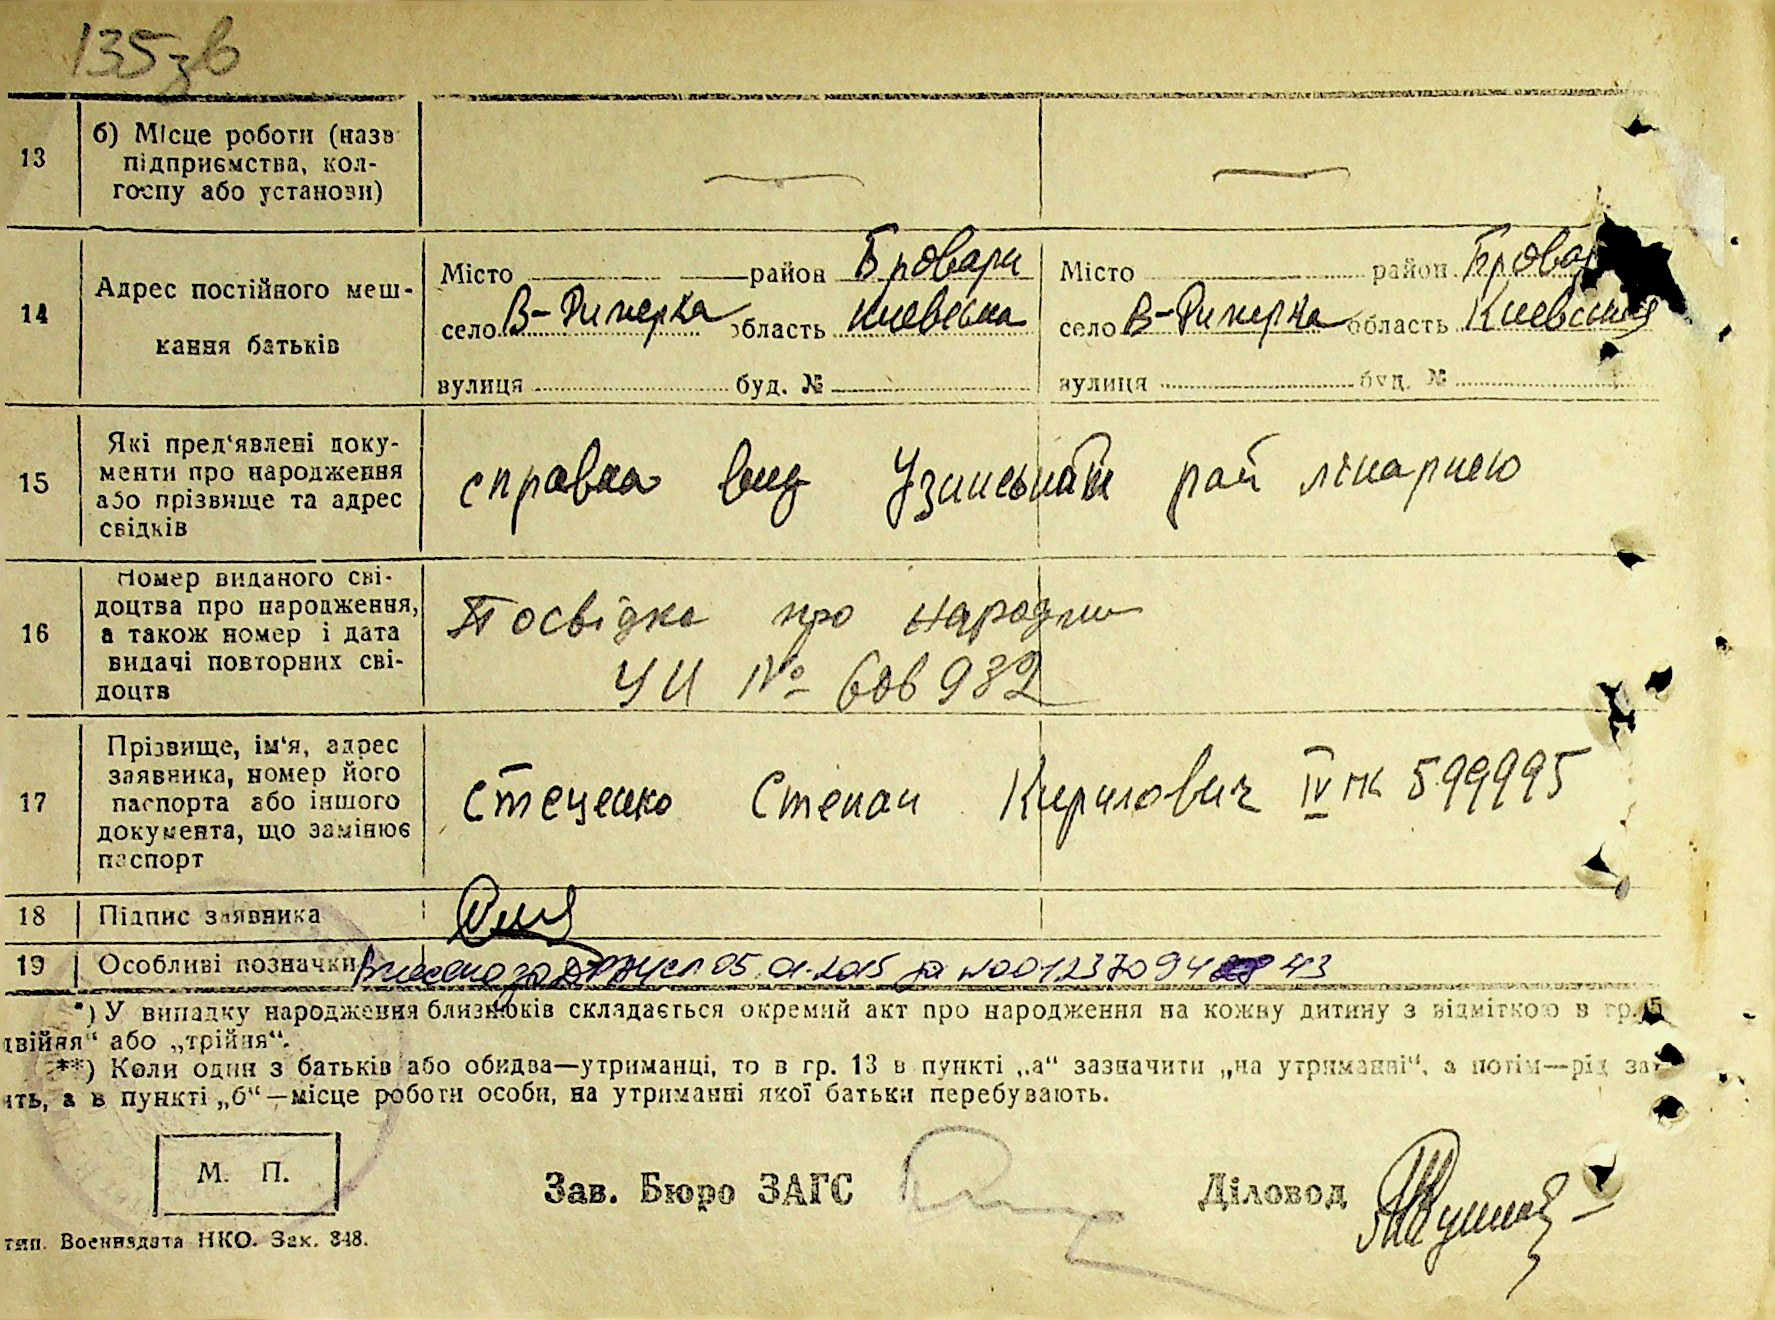 135 зв
13 б) Місце роботи (назв
підприємства, кол-
госпу або установи)
14 Адрес постійного меш-
кання батьків
Місто район Бровари
село В-Димерка область Киевська
вулиця буд. №
Місто район Бровар
село В-Димерка область Киевська
вулиця буд. №
15 Які пред'явлені доку-
менти про народження
або прізвище та адрес
свідків
справка вид Узинський рай лікарнею
16 Номер виданого сві-
доцтва про народження,
а також номер і дата
видачі повторних сві-
доцтв
Посвідка про народжн
УИ № 606932
17 Прізвище, ім'я, адрес
заявника, номер його
паспорта або іншого
документа, що замінює
паспорт
Стеценко Степан Кирилович IV ПК 599995
18 Підпис заявника
19 Особливі позначки
Внесено до ДРАЦСГ 05.01.2015 за №00123709443
*) У випадку народження близнюків складається окремий акт про народження на кожну дитину з відміткою в гр. 5
двійня" або „трійня".
**) Коли один з батьків або обидва—утриманці, то в гр. 13 в пункті „а" зазначити „на утриманні", а потім—рід за
ять, а в пункті „б"—місце роботи особи, на утриманні якої батьки перебувають.
М. П.
Зав. Бюро ЗАГС
Діловод
тип. Воениздата НКО. Зак. 348.